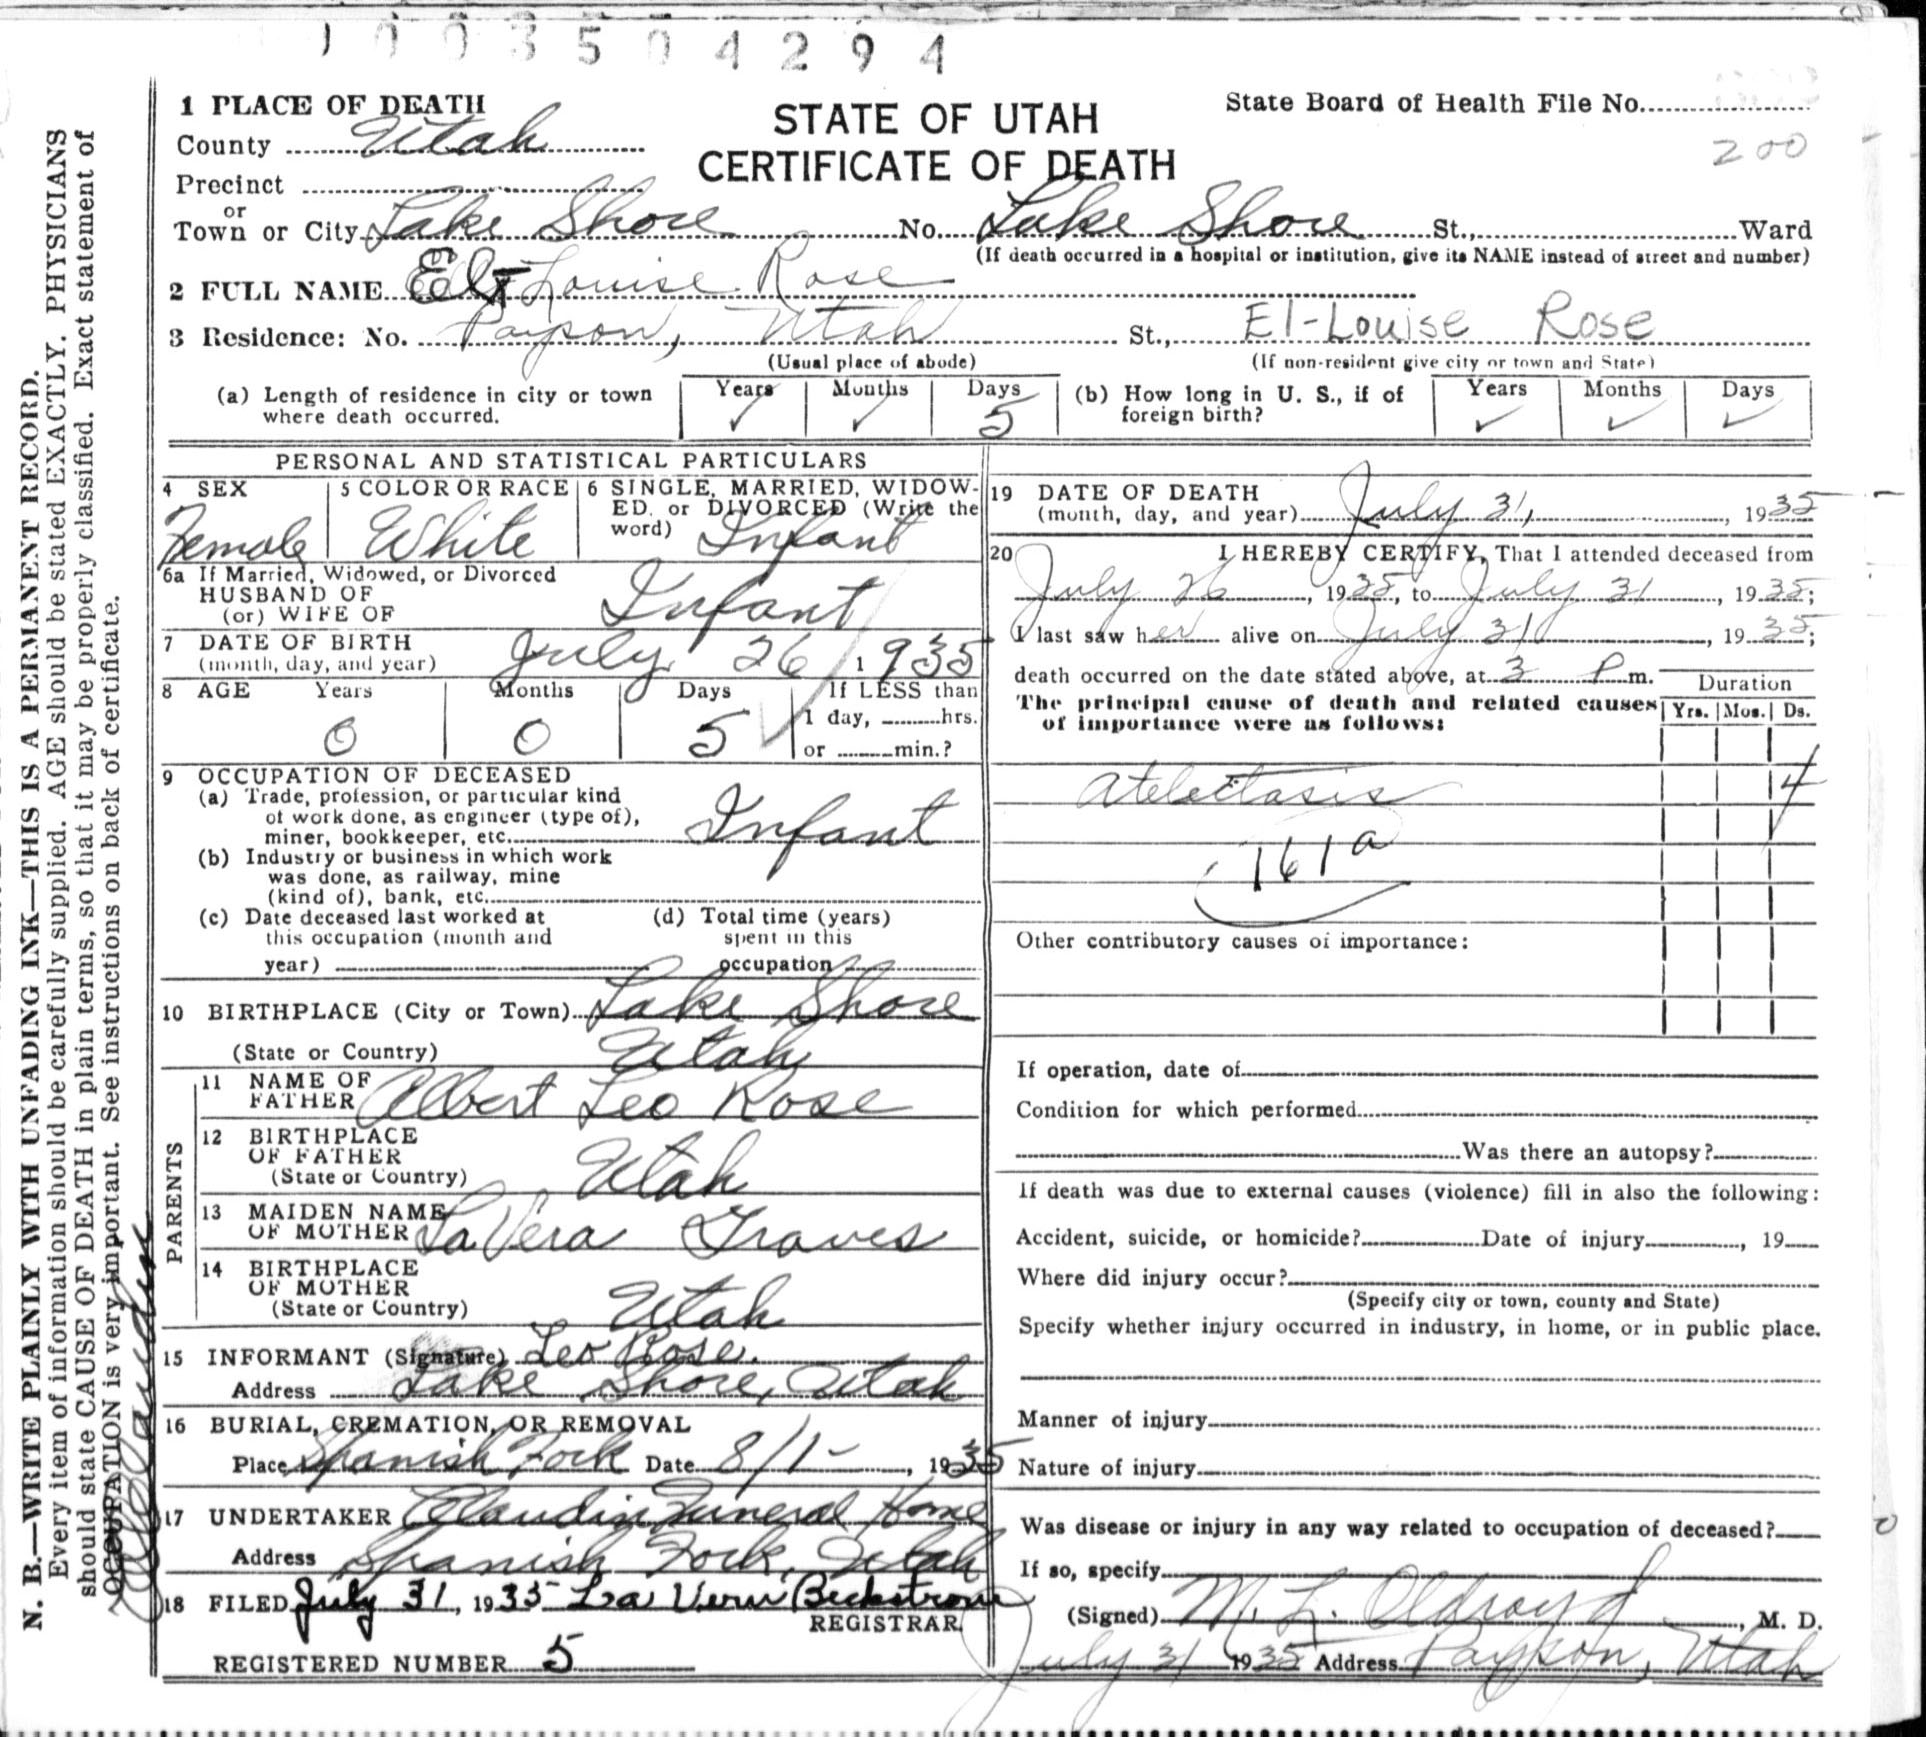 1003504294
1 PLACE OF DEATH
STATE OF UTAH
CERTIFICATE OF DEATH
State Board of Health File No.
200
County Utah
Precinct
or
Town or City Lake Shore No. Lake Shore St., Ward
(If death occurred in a hospital or institution, give its NAME instead of street and number)
2 FULL NAME El- Louise Rose
3 Residence: No. Payson, Utah St., El-Louise Rose
(Usual place of abode) (If non-resident give city or town and State)
(a) Length of residence in city or town where death occurred. Years ✓ Months ✓ Days 5
(b) How long in U. S., if of foreign birth? Years ✓ Months ✓ Days ✓
PERSONAL AND STATISTICAL PARTICULARS
4 SEX Female
5 COLOR OR RACE White
6 SINGLE, MARRIED, WIDOW-
ED, or DIVORCED (Write the
word) Infant
6a If Married, Widowed, or Divorced
HUSBAND OF
(or) WIFE OF Infant
7 DATE OF BIRTH
(month, day, and year) July 26 1935
8 AGE Years 0 Months 0 Days 5 If LESS than
1 day, hrs.
or min.?
9 OCCUPATION OF DECEASED
(a) Trade, profession, or particular kind
of work done, as engineer (type of),
miner, bookkeeper, etc. Infant
(b) Industry or business in which work
was done, as railway, mine
(kind of), bank, etc.
(c) Date deceased last worked at
this occupation (month and
year)
(d) Total time (years)
spent in this
occupation
10 BIRTHPLACE (City or Town) Lake Shore
(State or Country) Utah
PARENTS
11 NAME OF
FATHER Albert Leo Rose
12 BIRTHPLACE
OF FATHER
(State or Country) Utah
13 MAIDEN NAME
OF MOTHER LaVera Graves
14 BIRTHPLACE
OF MOTHER
(State or Country) Utah
15 INFORMANT (Signature) Leo Rose.
Address Lake Shore, Utah
16 BURIAL, CREMATION, OR REMOVAL
Place Spanish Fork Date 8/1- , 1935
17 UNDERTAKER Claudin Funeral Home
Address Spanish Fork, Utah
18 FILED July 31, 1935 La Vern Beckstrom
REGISTRAR.
REGISTERED NUMBER 5
19 DATE OF DEATH
(month, day, and year) July 31, , 1935
20 I HEREBY CERTIFY, That I attended deceased from
July 26 , 1935, to July 31 , 1935;
I last saw her alive on July 31 , 1935;
death occurred on the date stated above, at 3 P m.
The principal cause of death and related causes
of importance were as follows:
Duration
Yrs. Mos. Ds.
Atelectasis 4
161a
Other contributory causes of importance:
If operation, date of
Condition for which performed
Was there an autopsy?
If death was due to external causes (violence) fill in also the following:
Accident, suicide, or homicide? Date of injury , 19
Where did injury occur?
(Specify city or town, county and State)
Specify whether injury occurred in industry, in home, or in public place.
Manner of injury
Nature of injury
Was disease or injury in any way related to occupation of deceased?
If so, specify
(Signed) M. L. Oldroyd , M. D.
July 31 1935 Address Payson, Utah
N. B.—WRITE PLAINLY WITH UNFADING INK—THIS IS A PERMANENT RECORD.
Every item of information should be carefully supplied. AGE should be stated EXACTLY. PHYSICIANS
should state CAUSE OF DEATH in plain terms, so that it may be properly classified. Exact statement of
OCCUPATION is very important. See instructions on back of certificate.